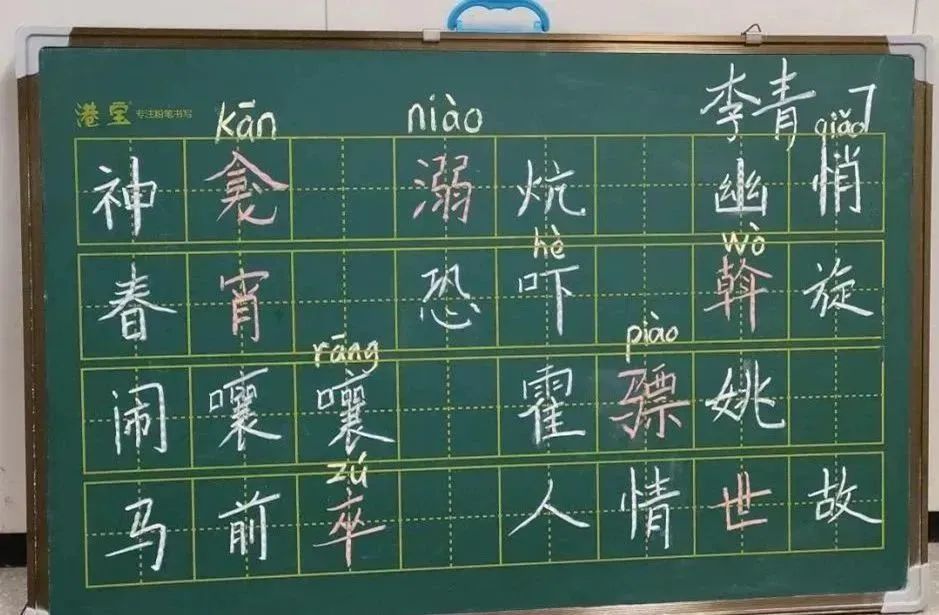 李青 7
港宝 专注粉笔书写
kān niào qiǎo
神龛 溺炕 幽悄
hè wò
春宵 恐吓 斡旋
rāng piào
闹嚷嚷 霍骠姚
zú
马前卒 人情世故